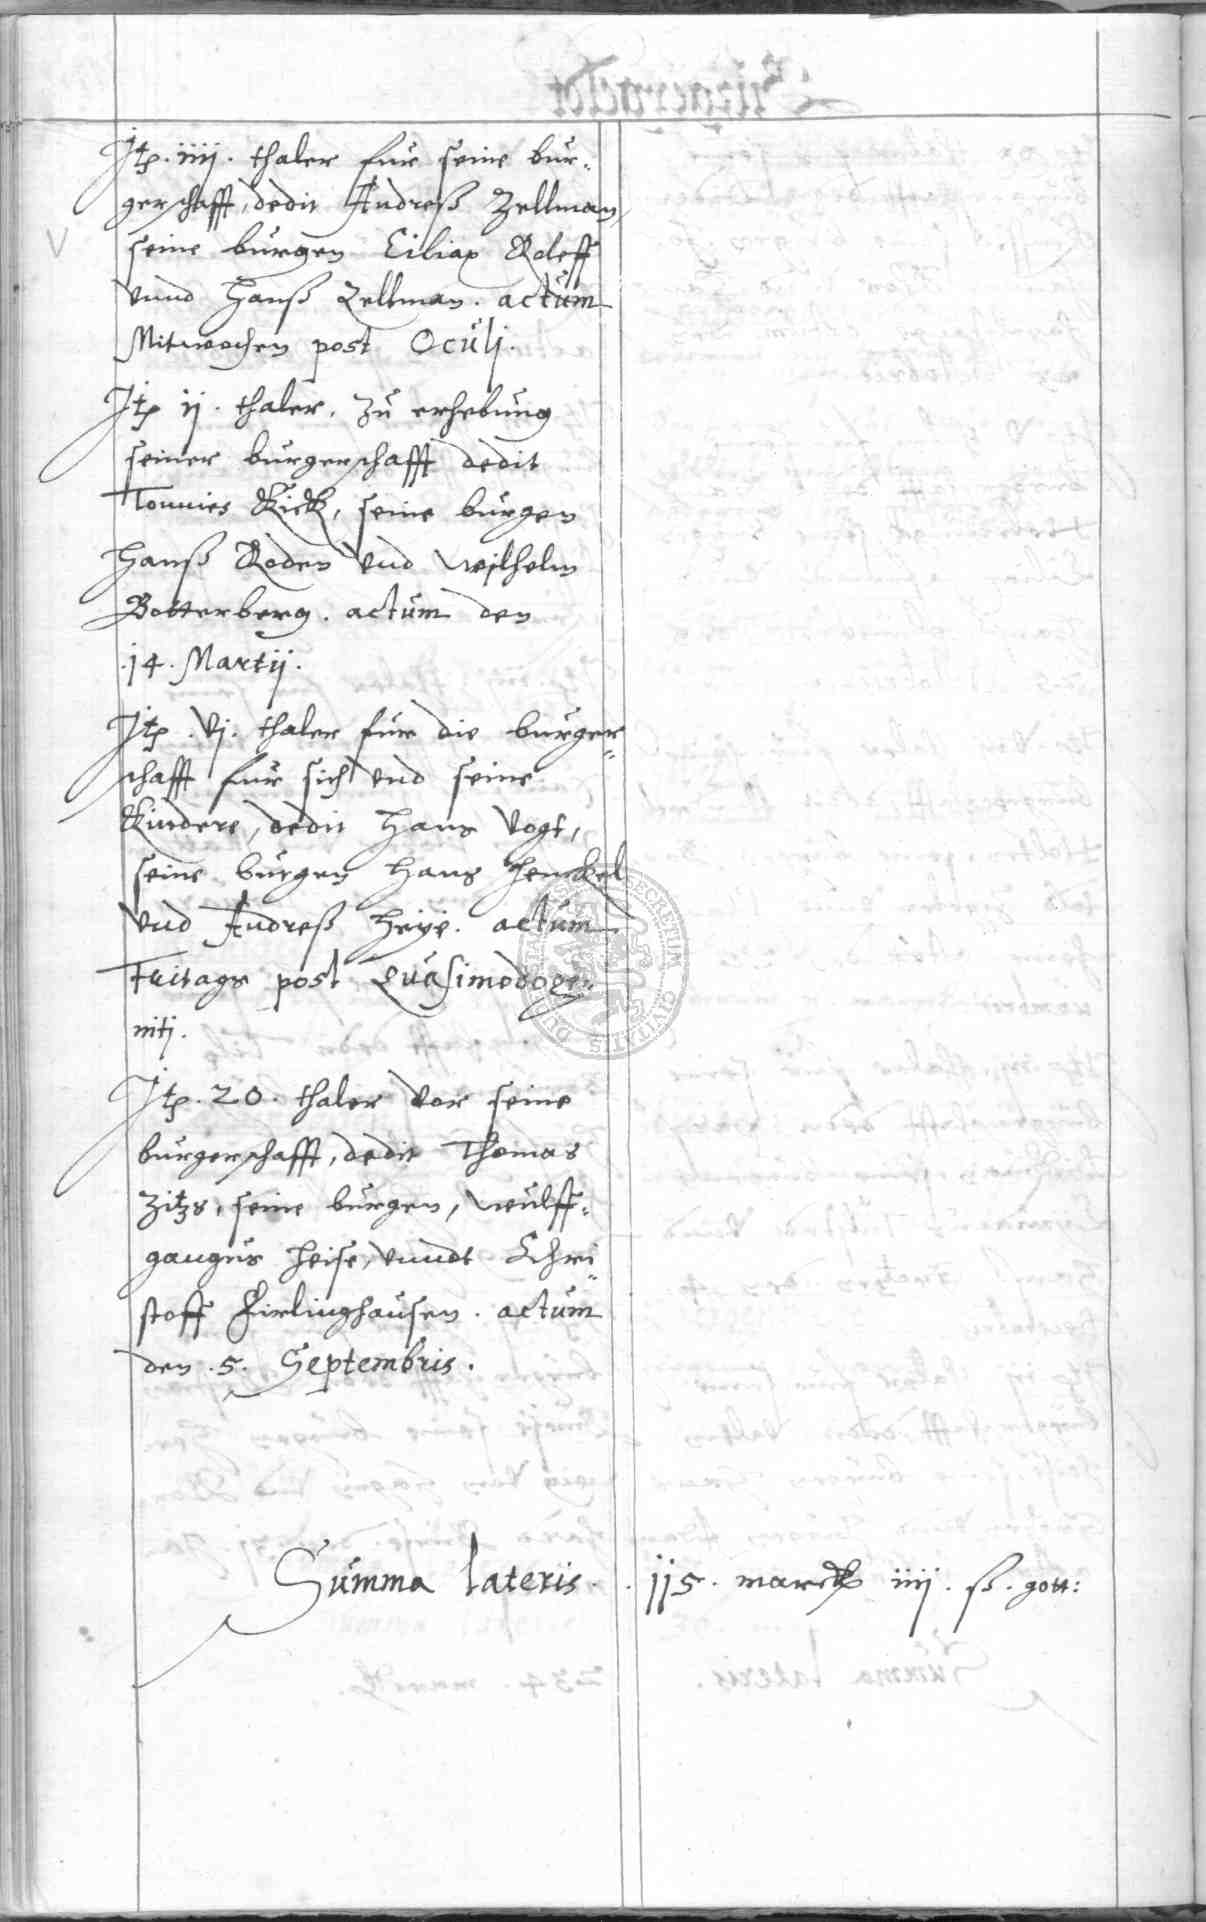 Itp. iiij. thaler fur seine bur-
gerschafft, dedit Andreß Zellman,
seine burgen Ciliax Roleff
vnnd Hanß Zellman. actum
Mitwochen post Oculj.
Itp ij. thaler, zu erhebung
seiner burgerschafft dedit
Tonnies Kick, seine burgen
Hanß Roden vnd Wilhelm
Botterberg. actum den
.14. Martij.
Itp. vj. thaler fur die burger-
schafft fur sich vnd seine
Kindere, dedit Hans Vogt,
seine burgen Hans Henckel
vnd Andreß Heye. actum
Freitags post Quasimodoge-
nitj.
Itp. 20. thaler vor seine
burgerschafft, dedit Thomas
Zitzs, seine burgen, Wulff-
gangus Heise, vnndt Chri-
stoff Girlinghausen. actum
den .5. Septembris.
Summa lateris. 115. marck iiij. ß. gott: